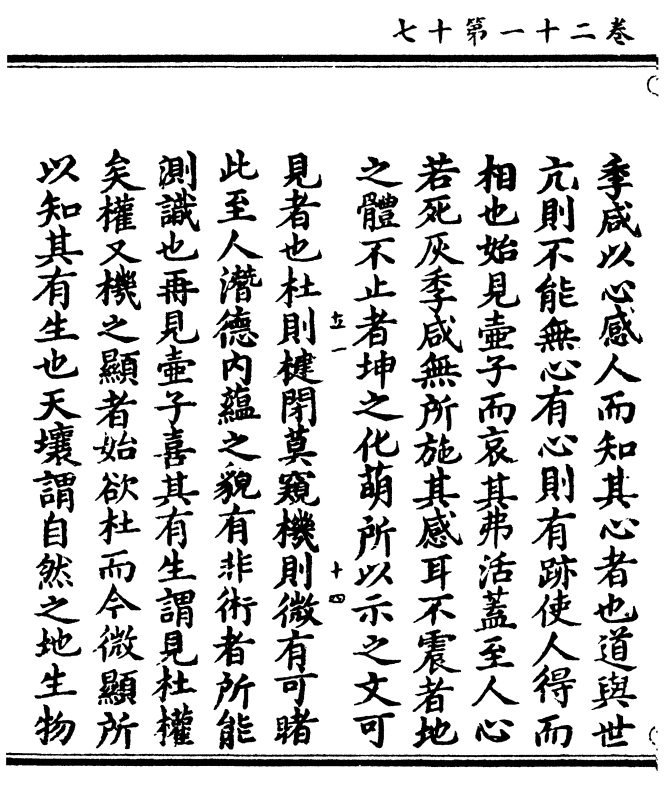 卷二十一第十七
季咸以心感人而知其心者也道與世
亢則不能無心有心則有跡使人得而
相也始見壺子而哀其弗活蓋至人心
若死灰季咸無所施其感耳不震者地
之體不止者坤之化萌所以示之文可
見者也杜則楗閉莫窺機則微有可睹
此至人潛德內蘊之貌有非術者所能
測識也再見壺子喜其有生謂見杜權
矣權又機之顯者始欲杜而今微顯所
以知其有生也天壤謂自然之地生物
十四